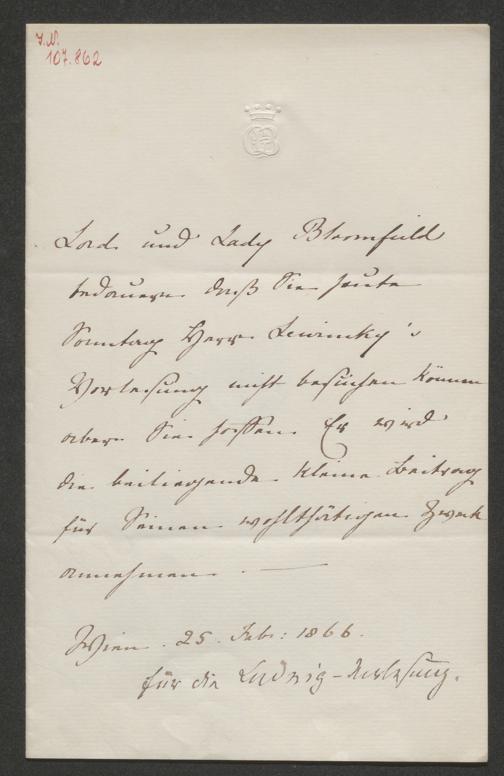 I.N.
107.862
Lord und Lady Bloomfield
bedauern daß Sie heute
Sonntag Herrn Lewinsky's
Vorlesung nicht besuchen können
aber Sie hoffen Er wird
die beiliegende kleine Beitrag
für Seinen wohlthätigen Zweck
annehmen. —
Wien. 25. Feb: 1866.
für die Ludwig-Vorlesung.